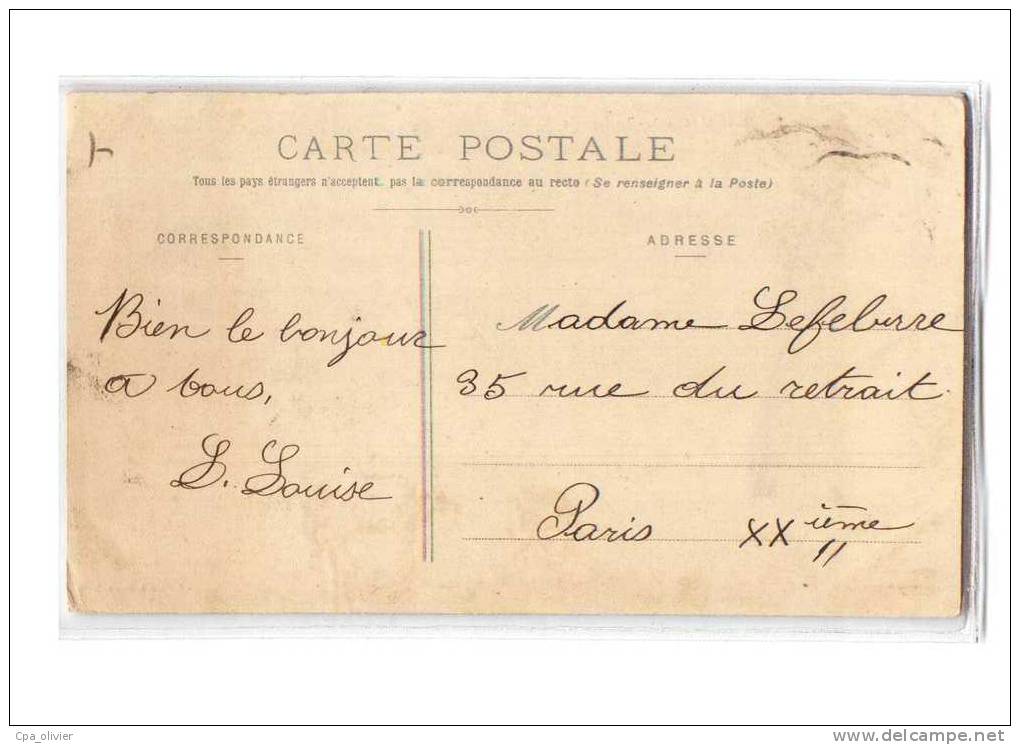 CARTE POSTALE
Tous les pays étrangers n'acceptent pas la correspondance au recto (Se renseigner à la Poste)
CORRESPONDANCE
Bien le bonjour
a tous,
L. Louise
ADRESSE
Madame Lefebvre
35 rue du retrait
Paris XXième
Cpa_olivier
www.delcampe.net